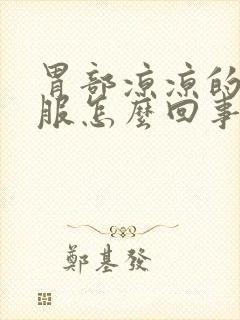 胃部凉凉的
服怎麼回事
鄭基發